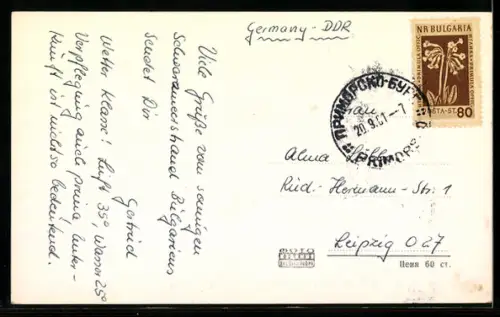 Germany-DDR
Viele Grüße vom sonnigen
Schwarzmeerstrand Bulgariens
Sendet Dir
Gertrud
Wetter klasse! Luft 35°, Wasser 25°
Verpflegung auch prima, Unter-
kunft ist nicht so bedeutend.
NR BULGARIA
80
ПРИМОРСКО-БУРГ
20.9.61-7
PRIMORSKO
Frau
Alma
Rud.-Hermann-Str. 1
Leipzig O27
ФОТО
Цена 60 ст.